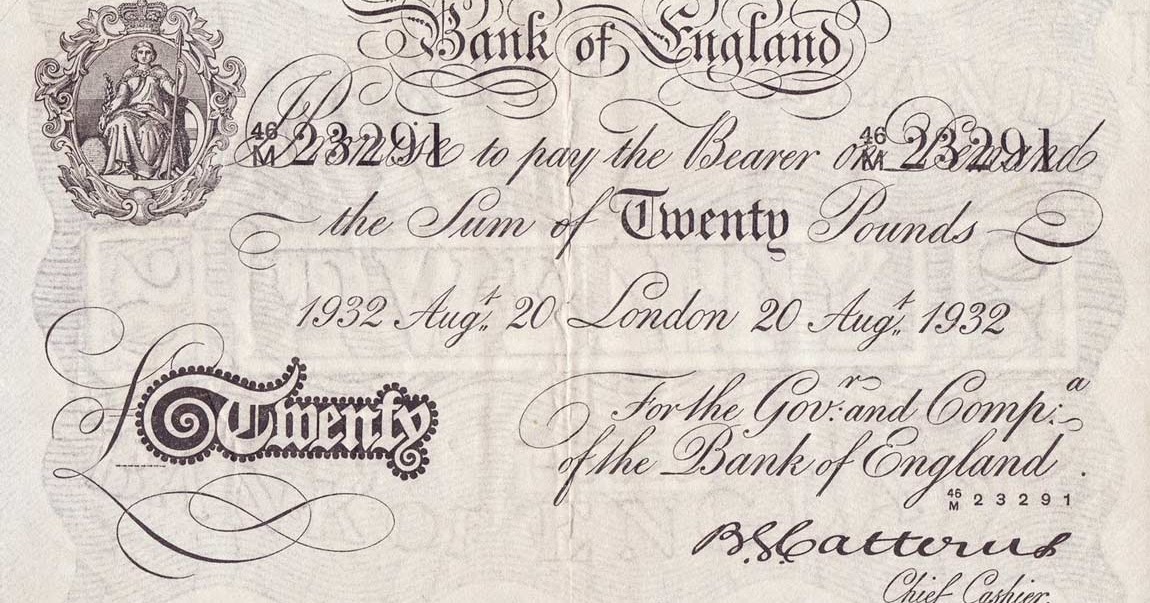 Bank of England
46
M 23291 Promise to pay the Bearer on Demand 46
M 23291
the Sum of Twenty Pounds
1932 Augt 20 London 20 Augt 1932
£Twenty
For the Govr: and Compa:
of the Bank of England.
46
M 23291
B.G. Catterns
Chief Cashier.